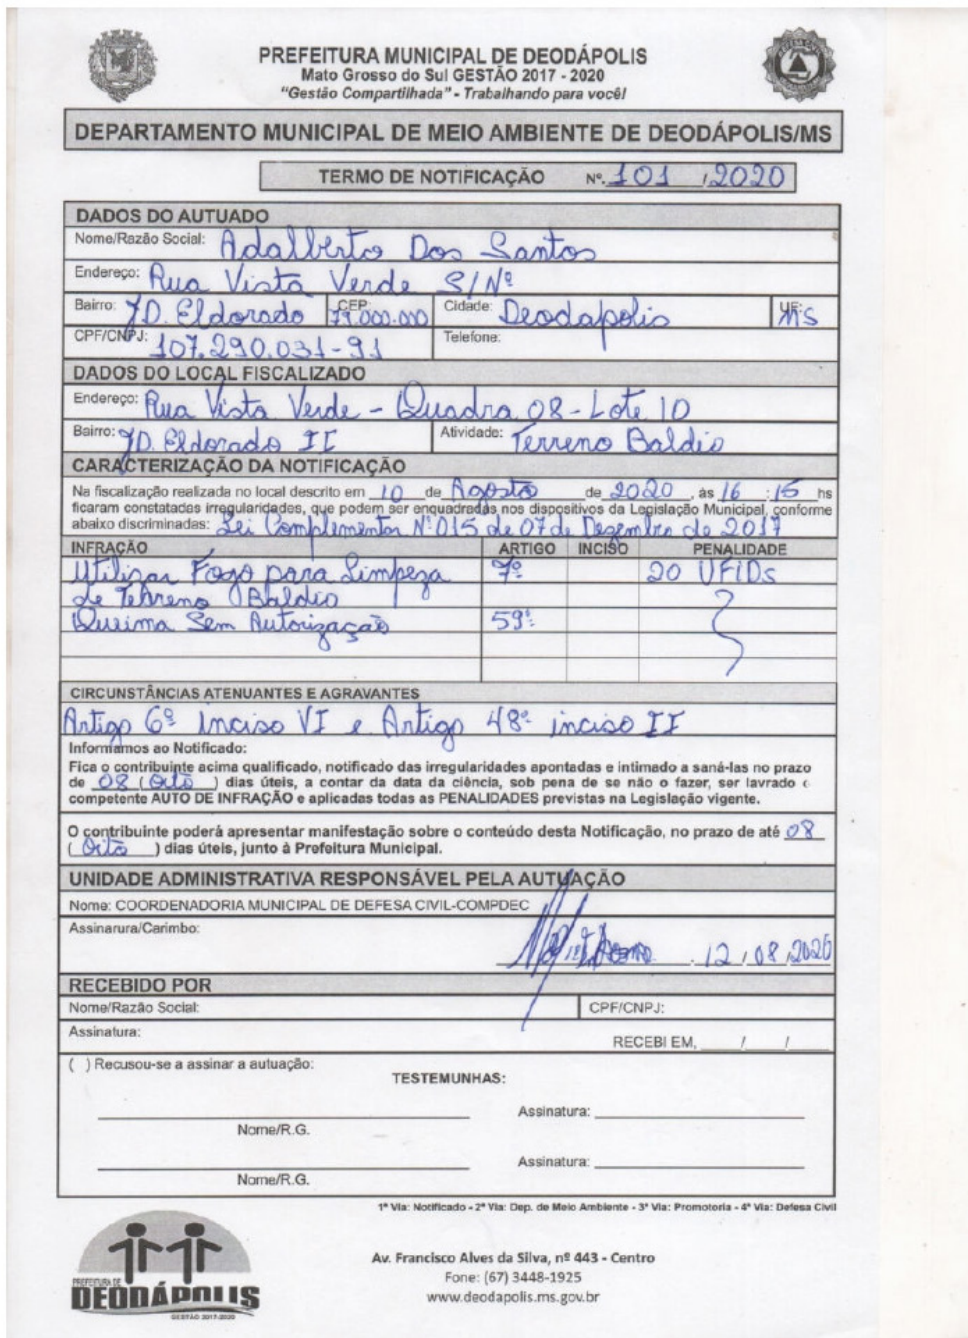 PREFEITURA MUNICIPAL DE DEODÁPOLIS
Mato Grosso do Sul GESTÃO 2017 - 2020
"Gestão Compartilhada" - Trabalhando para você!
DEPARTAMENTO MUNICIPAL DE MEIO AMBIENTE DE DEODÁPOLIS/MS
TERMO DE NOTIFICAÇÃO Nº. 101 / 2020
DADOS DO AUTUADO
Nome/Razão Social: Adalberto Dos Santos
Endereço: Rua Vista Verde S/Nº
Bairro: JD. Eldorado CEP: 79.000.000 Cidade: Deodapolis UF: MS
CPF/CNPJ: 107.290.031-91 Telefone:
DADOS DO LOCAL FISCALIZADO
Endereço: Rua Vista Verde - Quadra 08 - Lote 10
Bairro: JD. Eldorado II Atividade: Terreno Baldio
CARACTERIZAÇÃO DA NOTIFICAÇÃO
Na fiscalização realizada no local descrito em 10 de Agosto de 2020, às 16 : 15 hs
ficaram constatadas irregularidades, que podem ser enquadradas nos dispositivos da Legislação Municipal, conforme
abaixo discriminadas: Lei Complementar Nº 015 de 07 de Dezembro de 2017
INFRAÇÃO ARTIGO INCISO PENALIDADE
Utilizar Fogo para Limpeza 7º 20 UFIDs
de Terreno Baldio
Queima Sem Autorização 59º
CIRCUNSTÂNCIAS ATENUANTES E AGRAVANTES
Artigo 6º inciso VI e Artigo 48º inciso II
Informamos ao Notificado:
Fica o contribuinte acima qualificado, notificado das irregularidades apontadas e intimado a saná-las no prazo
de 08 ( Oito ) dias úteis, a contar da data da ciência, sob pena de se não o fazer, ser lavrado o
competente AUTO DE INFRAÇÃO e aplicadas todas as PENALIDADES previstas na Legislação vigente.
O contribuinte poderá apresentar manifestação sobre o conteúdo desta Notificação, no prazo de até 08
( Oito ) dias úteis, junto à Prefeitura Municipal.
UNIDADE ADMINISTRATIVA RESPONSÁVEL PELA AUTUAÇÃO
Nome: COORDENADORIA MUNICIPAL DE DEFESA CIVIL-COMPDEC
Assinarura/Carimbo:
12 / 08 / 2020
RECEBIDO POR
Nome/Razão Social: CPF/CNPJ:
Assinatura:
RECEBI EM, ____/____/____
( ) Recusou-se a assinar a autuação:
TESTEMUNHAS:
Assinatura:
Nome/R.G.
Assinatura:
Nome/R.G.
1ª Via: Notificado - 2ª Via: Dep. de Meio Ambiente - 3ª Via: Promotoria - 4ª Via: Defesa Civil
Av. Francisco Alves da Silva, nº 443 - Centro
Fone: (67) 3448-1925
www.deodapolis.ms.gov.br
PREFEITURA DE
DEODÁPOLIS
GESTÃO 2017-2020